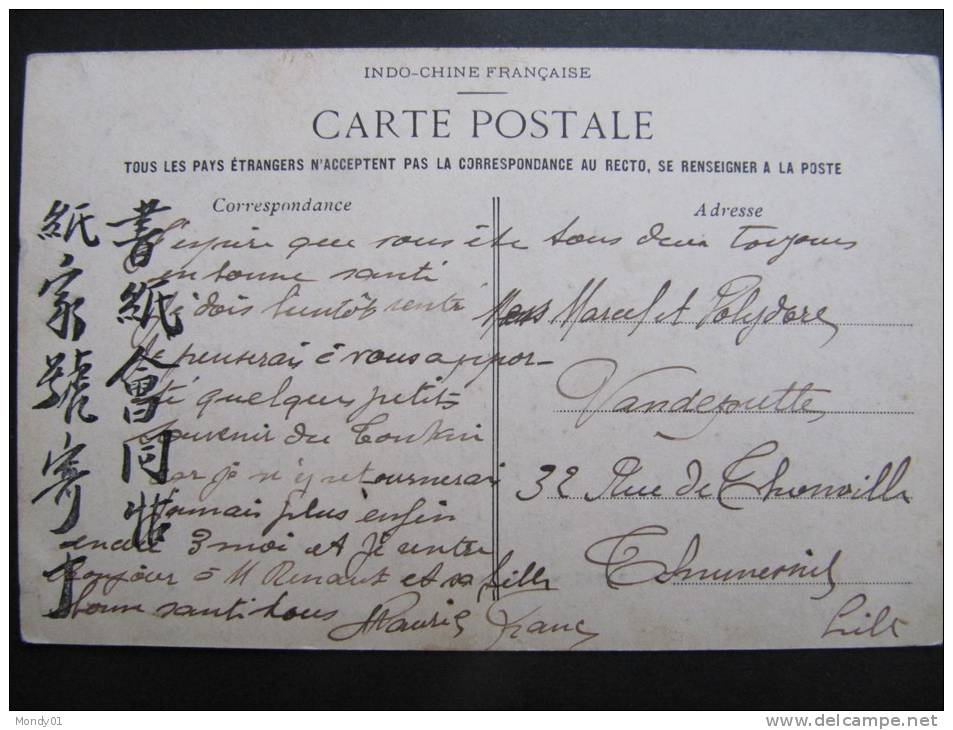 INDO-CHINE FRANÇAISE
CARTE POSTALE
TOUS LES PAYS ÉTRANGERS N'ACCEPTENT PAS LA CORRESPONDANCE AU RECTO, SE RENSEIGNER A LA POSTE
Correspondance
J'espère que vous ête tous deux toujours
en bonne santé
Je dois bientôt rentré
Je penserais à vous appor-
té quelques petits
souvenir du Tonkin
car je n'y retournerai
jamais plus enfin
encore 3 moi et Je rentre
bonjour à M Renaut et sa fille
bonne santé tous Maurice
Adresse
Marcel et Polydore
Vandeputte
32 Rue de Thionville
Lille
書紙會同
紙家號寄
Mondy01
www.delcampe.net